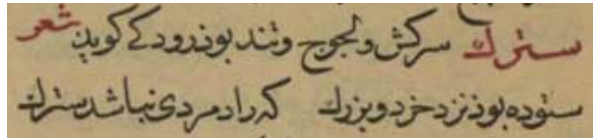 سترك سركش و لجوج و تند بوذ رودكے كويذ شعر
ستوده بوذ نزد خرد و بزرك كه راد مردى نباشد سترك